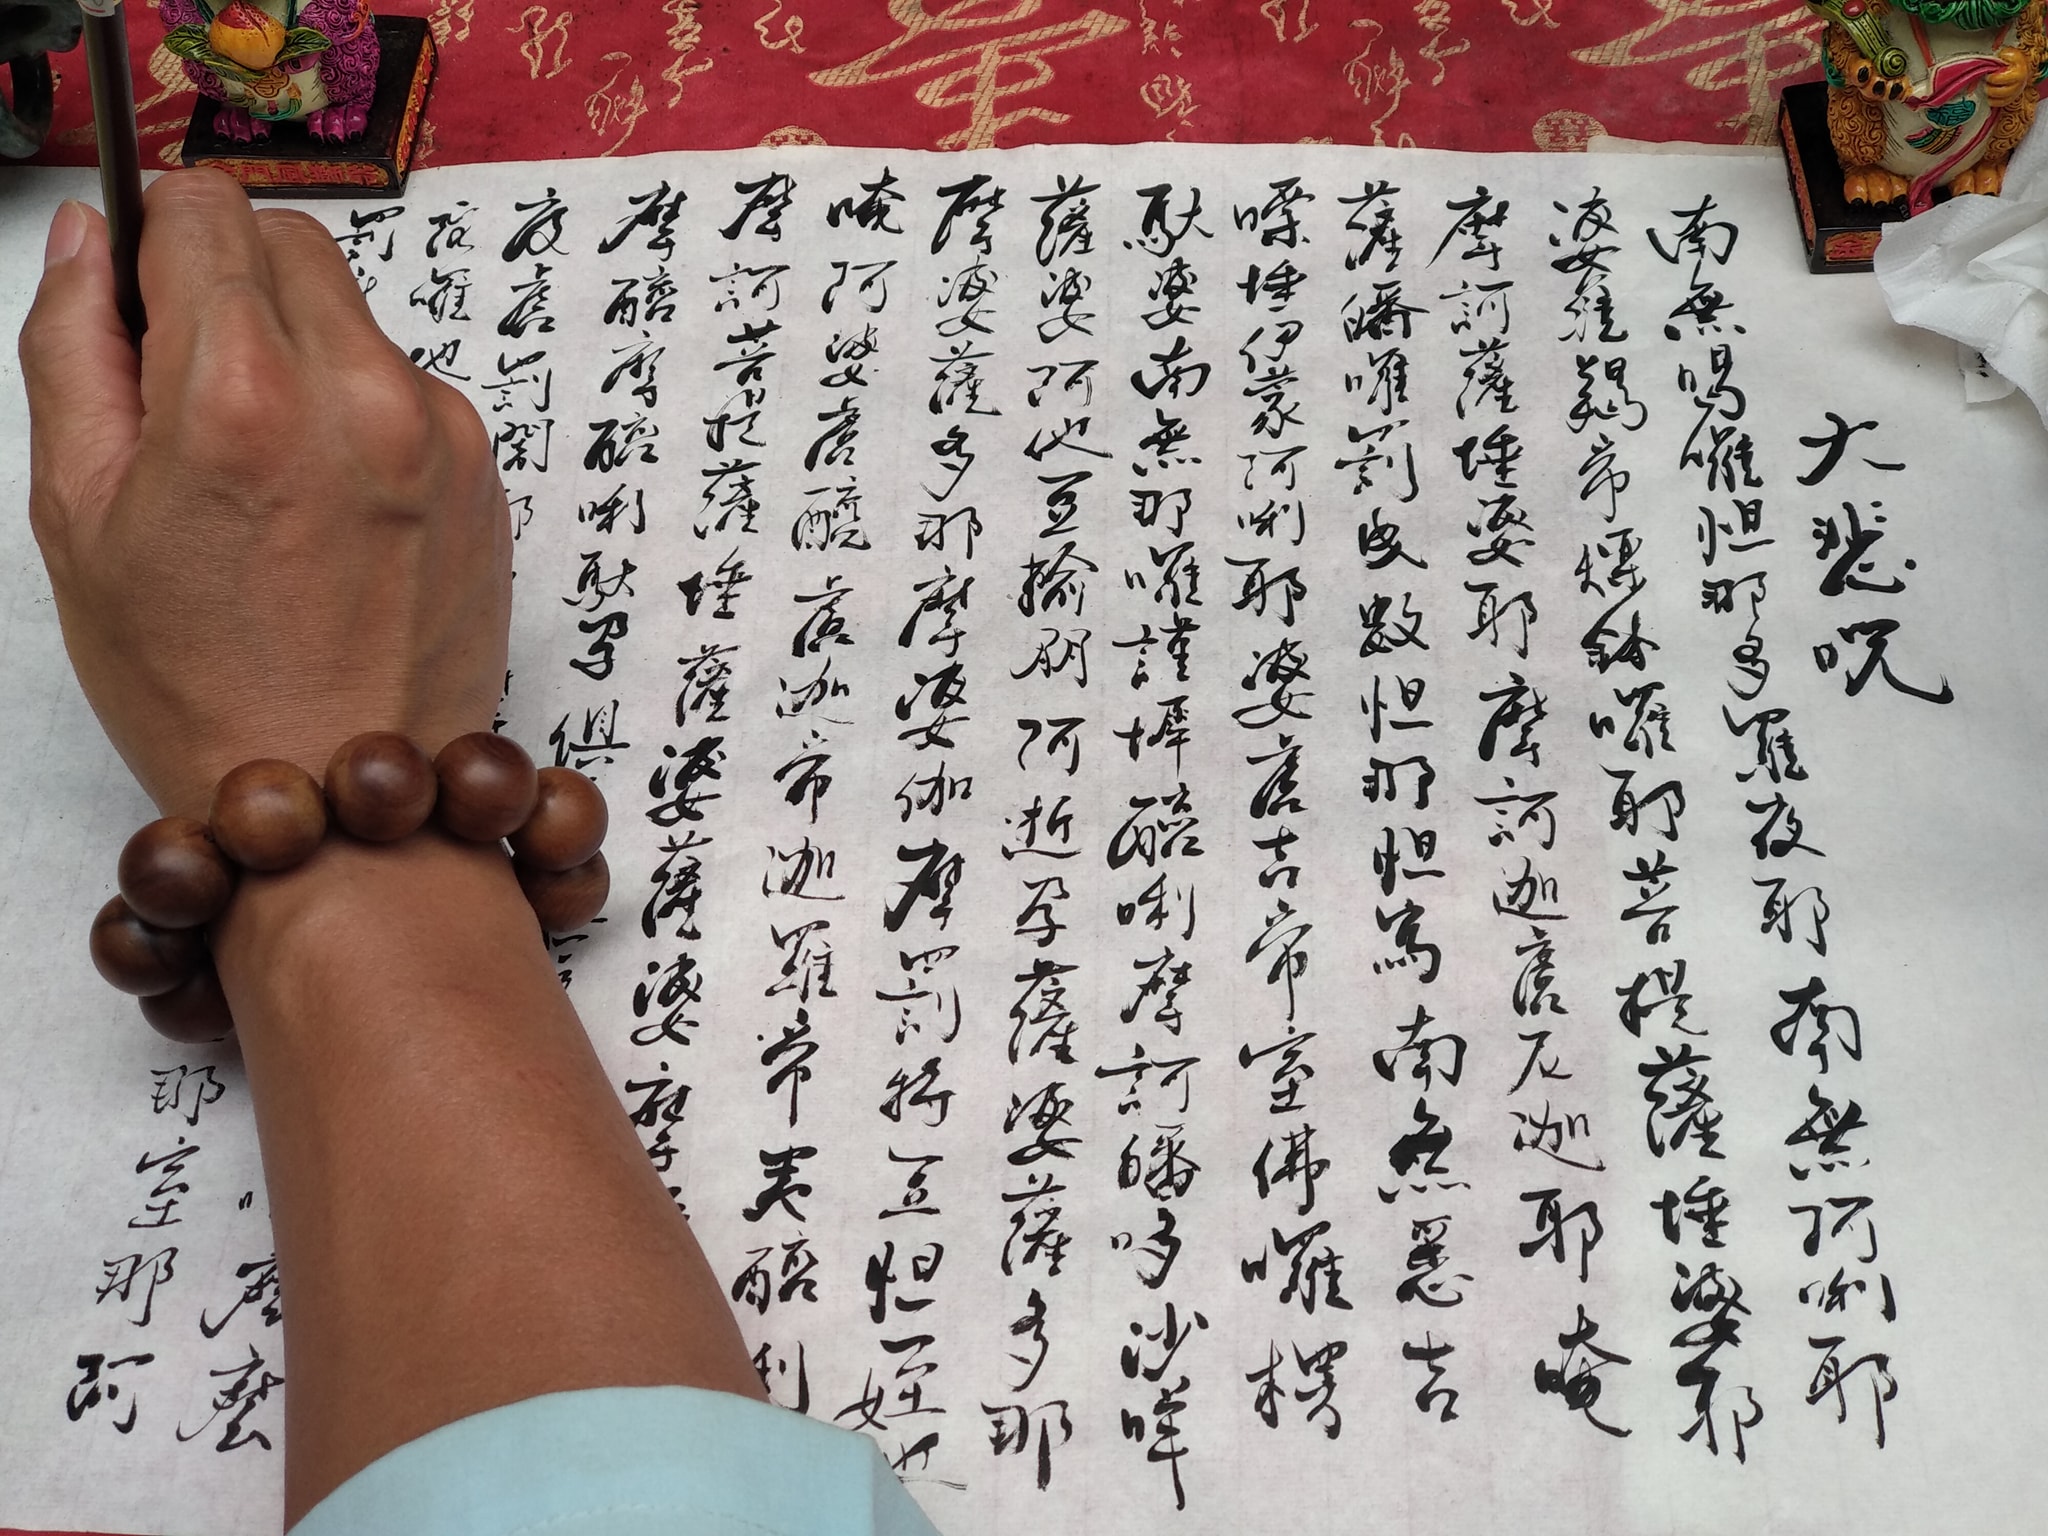 大悲咒
南無喝囉怛那哆羅夜耶南無阿唎耶
婆羅羯帝爍鉢囉耶菩提薩埵婆耶
摩訶薩埵婆耶摩訶迦盧尼迦耶唵
薩皤囉罰曳數怛那怛寫南無悉吉
㗚埵伊蒙阿唎耶婆盧吉帝室佛囉楞
馱婆南無那囉謹墀醯唎摩訶皤哆沙咩
薩婆阿他豆輸朋阿逝孕薩婆薩多那
摩婆薩多那摩婆伽摩罰特豆怛姪他
唵阿婆盧醯盧迦帝迦羅帝夷醯唎
摩訶菩提薩埵薩婆薩婆摩
摩醯摩醯唎馱孕俱
度盧罰闍耶
陀囉他
罰
摩麼
耶室那阿